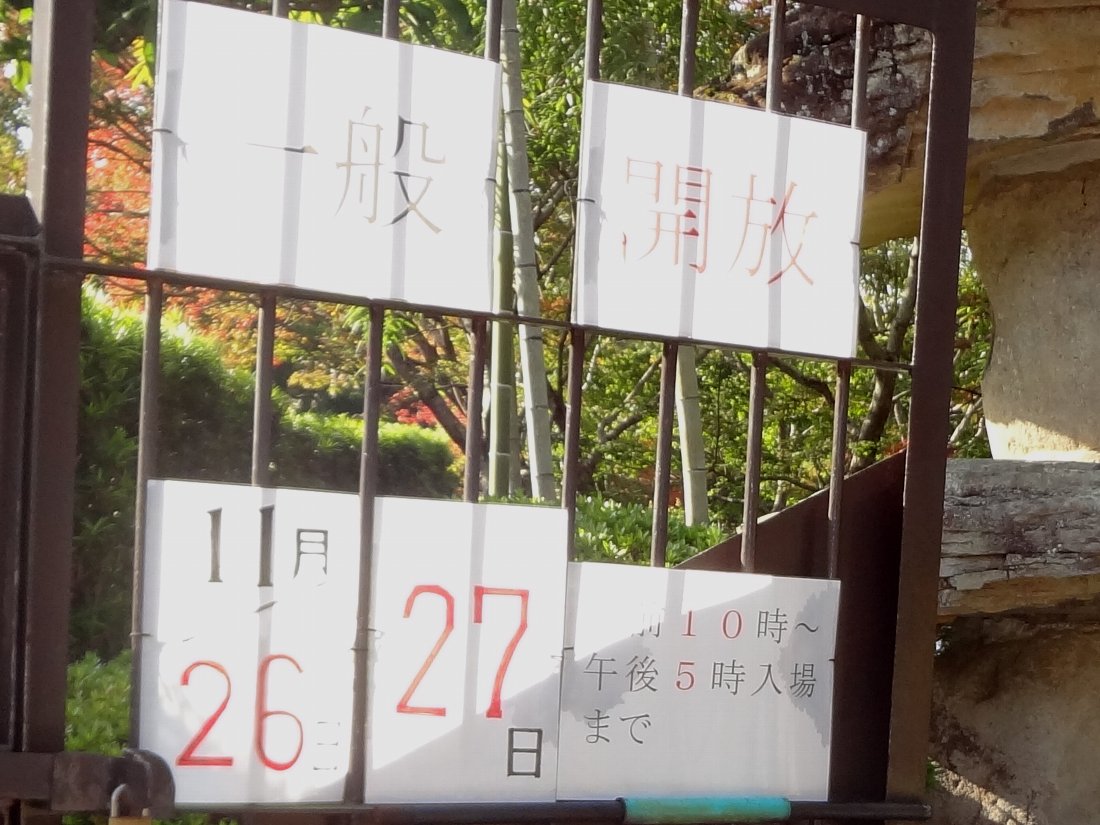 一般 開放
11月
26日
27
日
前10時～
午後5時入場
まで